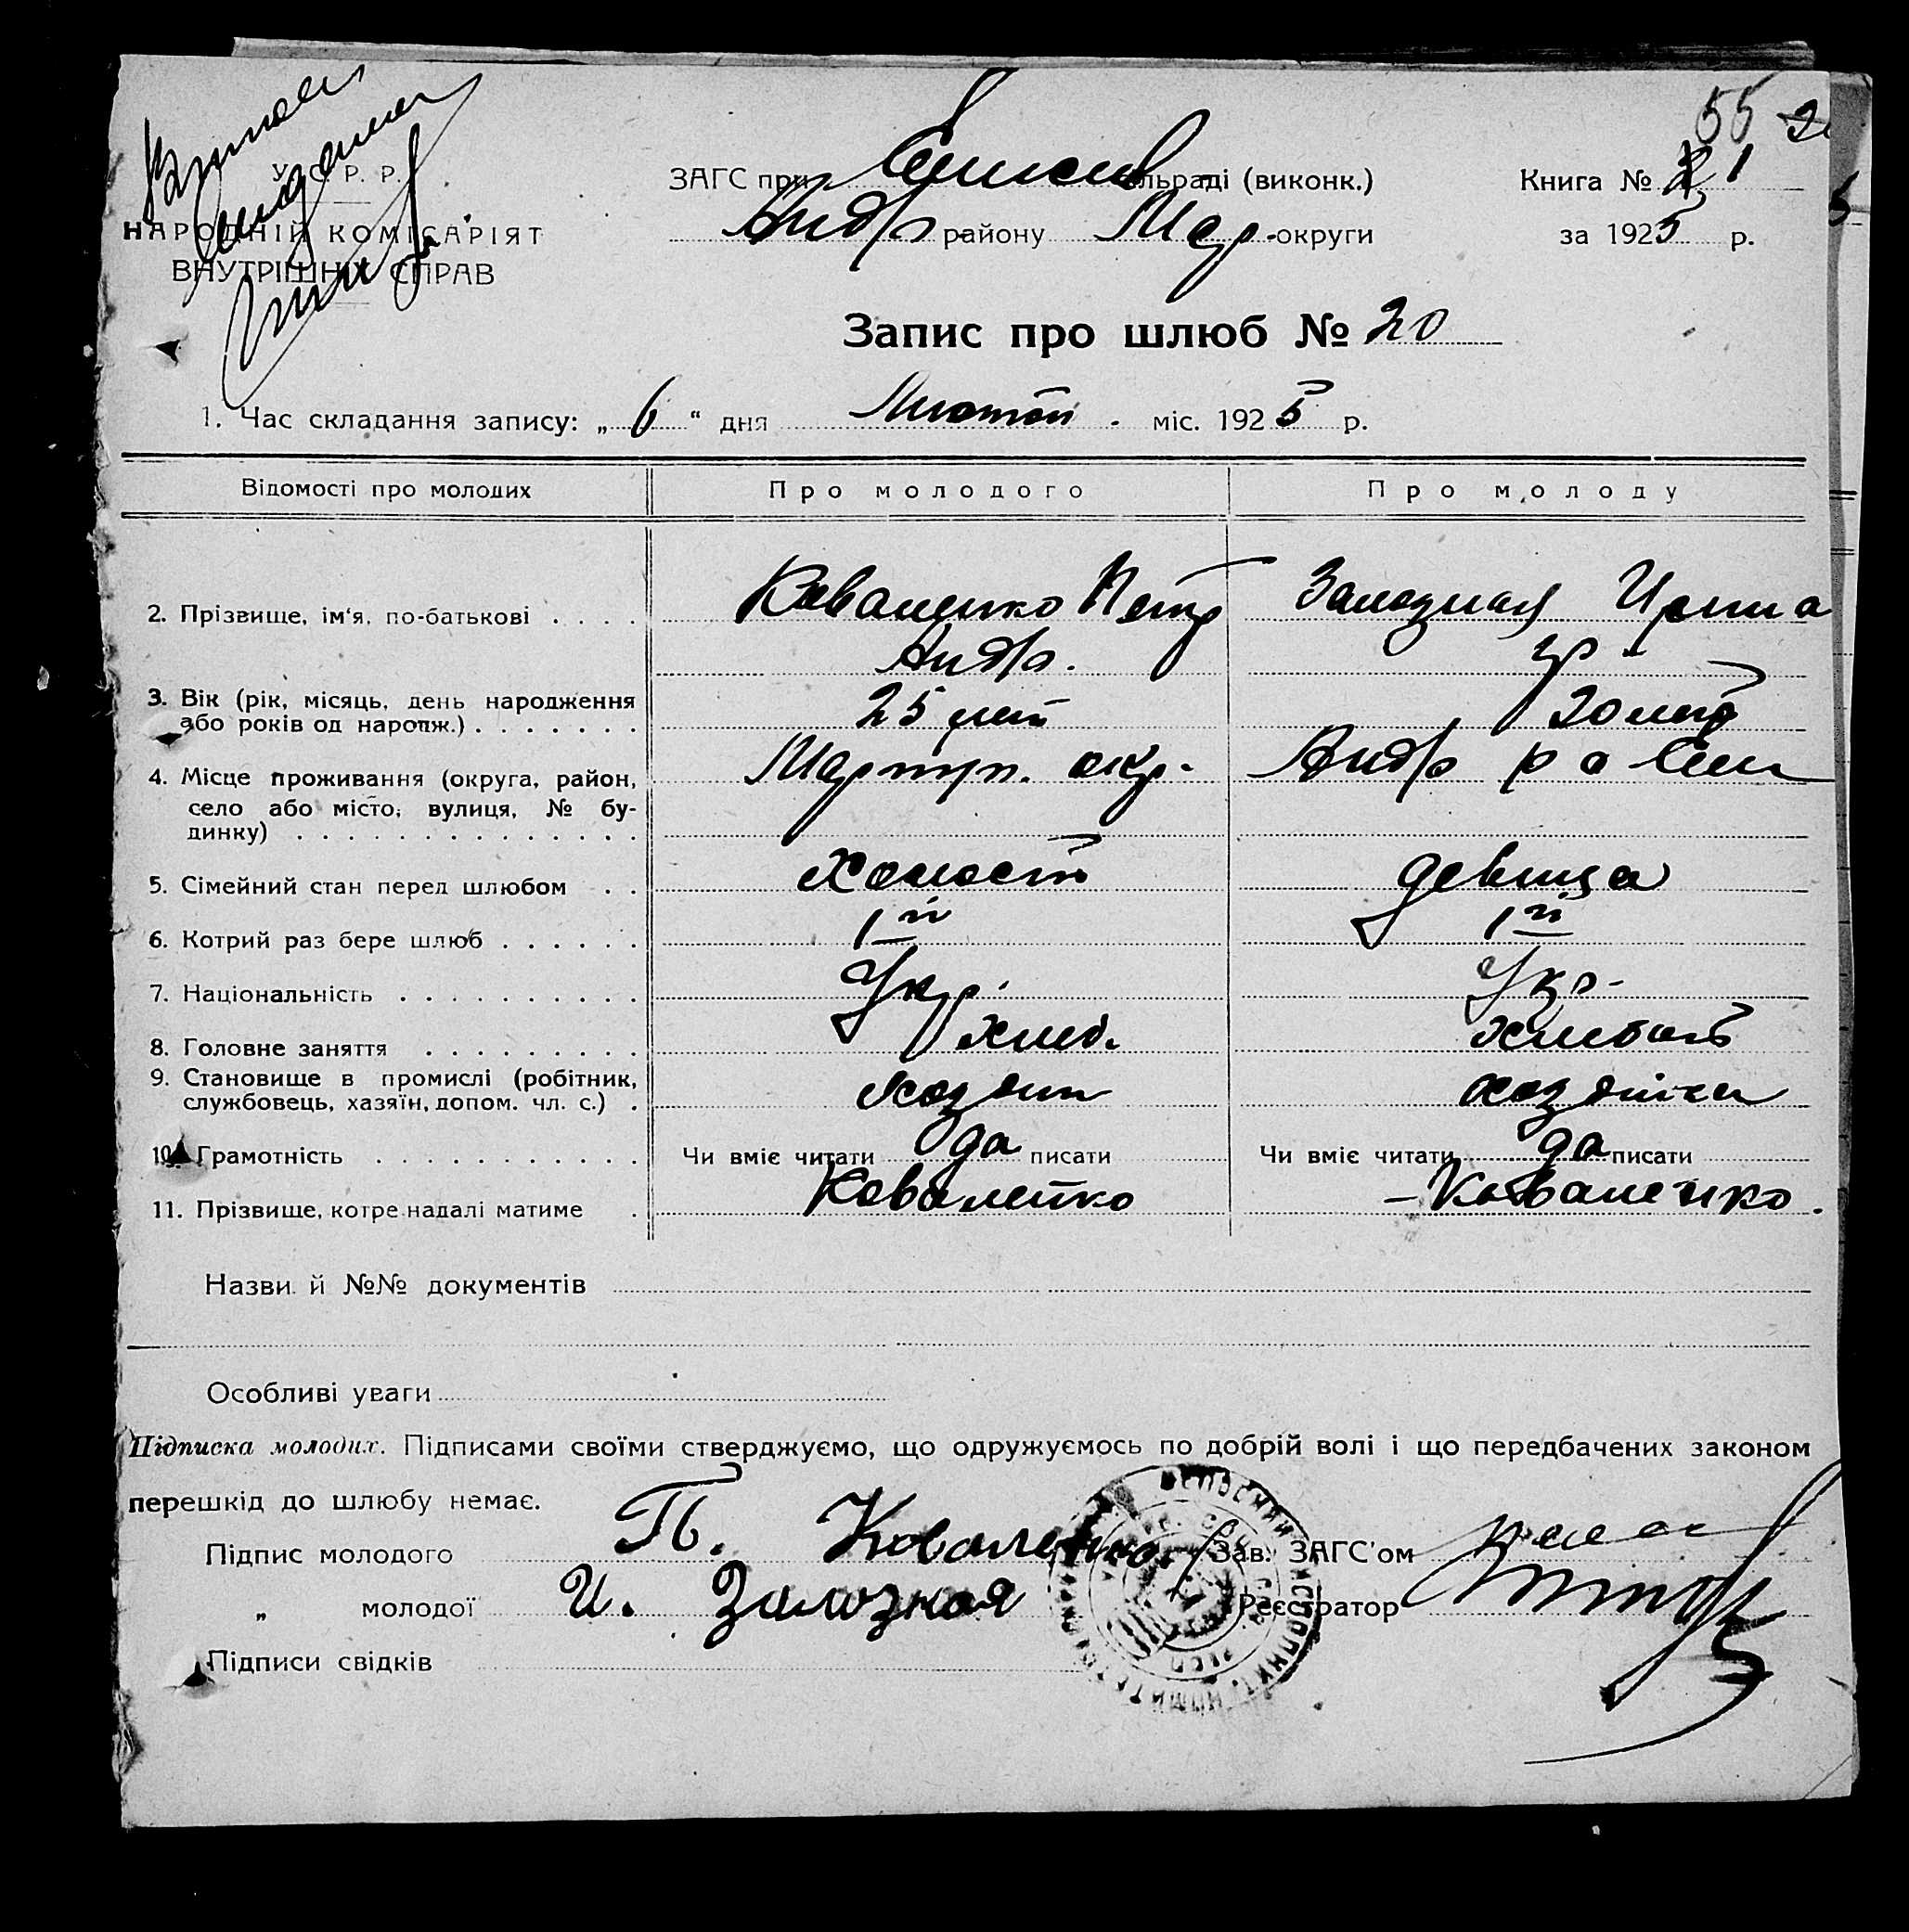 У. С. Р. Р.
НАРОДНІЙ КОМІСАРІЯТ
ВНУТРІШНІХ СПРАВ
55
ЗАГС при сільраді (виконк.)
Книга № 1
Андр. району Мар. округи
за 1925 р.
Запис про шлюб № 20
1. Час складання запису: „ 6 “ дня міс. 1925 р.
Відомості про молодих Про молодого Про молоду
2. Прізвище, ім'я, по-батькові . . . . Коваленко Петр Залозная Ирина
Андр. Гр.
3. Вік (рік, місяць, день народження
або років од народж.) . . . . . . . 25 лет 20 лет
4. Місце проживання (округа, район, Мариуп. окр. Андр р
село або місто, вулиця, № бу-
динку) . . . . . . . . . . . . . .
5. Сімейний стан перед шлюбом . . холост девица
6. Котрий раз бере шлюб . . . . . . 1й 1й
7. Національність . . . . . . . . . . Укр. Укр.
8. Головне заняття . . . . . . . . . хлеб.
9. Становище в промислі (робітник,
службовець, хазяїн, допом. чл. с.) .
10. Грамотність . . . . . . . . . . . Чи вміє читати да писати Чи вміє читати да писати
11. Прізвище, котре надалі матиме . Коваленко – Коваленко.
Назви й №№ документів
Особливі уваги
Підписка молодих. Підписами своїми стверджуємо, що одружуємось по добрій волі і що передбачених законом
перешкід до шлюбу немає.
Підпис молодого П. Коваленко. Зав. ЗАГС'ом
„ молодої И. Залозная Реєстратор
Підписи свідків